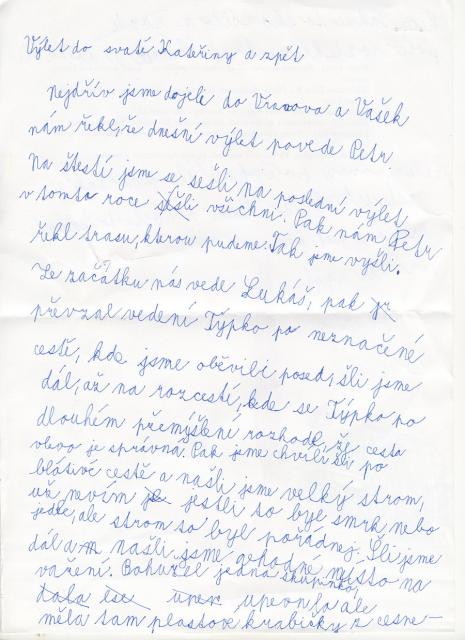 Výlet do svaté Kateřiny a zpět
Nejdřív jsme dojeli do Vranova a Vašek
nám řekl, že dnešní výlet povede Petr.
Na štestí jsme se sešli na poslední výlet
v tomto roce všichni. Pak nám Petr
řekl trasu, kterou pudeme. Tak jsme vyšli.
Ze začátku nás vede Lukáš, pak
převzal vedení Týpko po neznačené
cestě, kde jsme oběvili posed, šli jsme
dál, až na rozcestí, kde se Týpko po
dlouhém přemýšlení rozhodl, že cesta
vlevo je správná. Pak jsme chvíli šli po
blátivé cestě a našli jsme velký strom,
už nevím jestli to byl smrk nebo
jedle, ale strom to byl pořádnej. Šli jsme
dál a našli jsme vhodné místo na
vaření. Bohužel jedna skupinka,
ale
měla tam plastové krabičky z cesne-